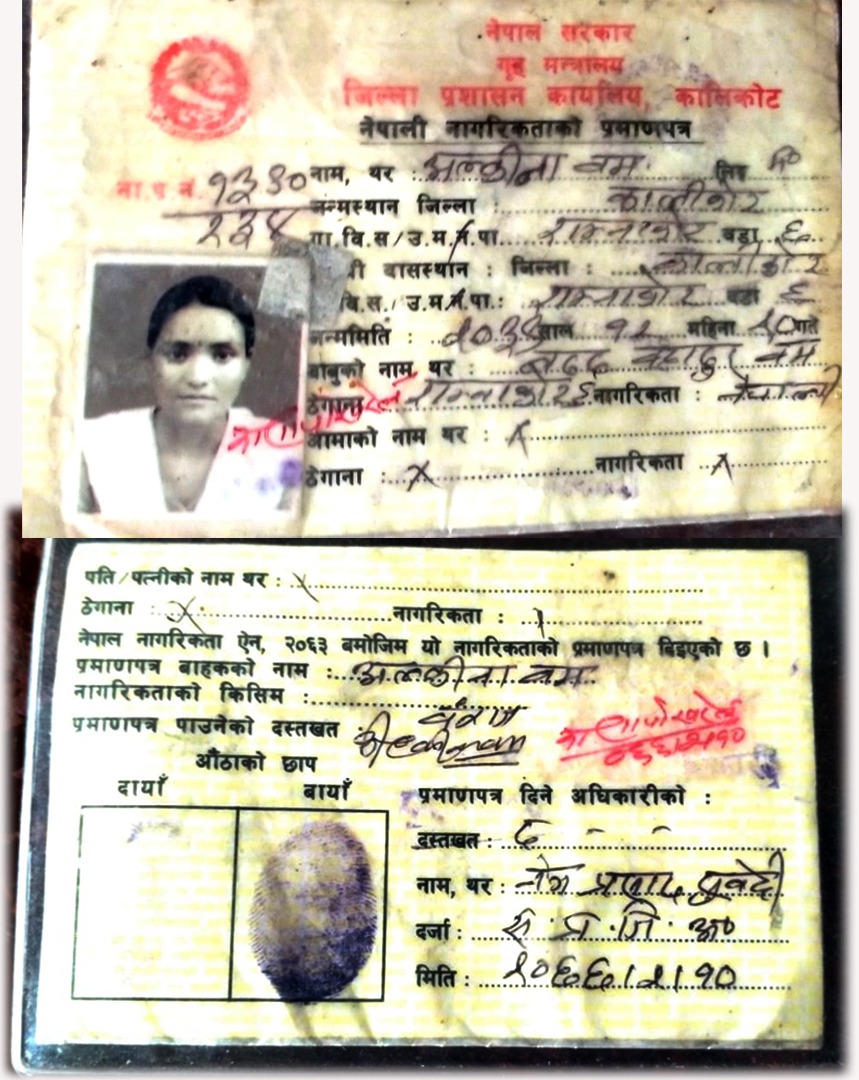 नेपाल सरकार
गृह मन्त्रालय
जिल्ला प्रशासन कार्यालय, कालिकोट
नेपाली नागरिकताको प्रमाणपत्र
ना.प्र.नं. १३९०
२३४
नाम, थर : अल्लीना बम लिङ्ग म०
जन्मस्थान जिल्ला : कालीकोट
गा.वि.स/उ.म.न.पा. राम्नाकोट वडा ६
बासस्थान : जिल्ला : कालीकोट
वि.स./उ.म.न.पा.: राम्नाकोट वडा ६
जन्ममिति : साल १२ महिना २० गते
बाबुको नाम थर : बहादुर बम
ठेगाना राम्नाकोट ६ नागरिकता : नेपाली
आमाको नाम थर : x
ठेगाना : x नागरिकता x
पति/पत्नीको नाम थर : x
ठेगाना : x नागरिकता :
नेपाल नागरिकता ऐन, २०६३ बमोजिम यो नागरिकताको प्रमाणपत्र दिइएको छ ।
प्रमाणपत्र बाहकको नाम : अल्लीना बम
नागरिकताको किसिम : वंशज
प्रमाणपत्र पाउनेको दस्तखत
औंठाको छाप
दायाँ बायाँ
प्रमाणपत्र दिने अधिकारीको :
दस्तखत : द - -
नाम, थर : प्रसाद सुवेदी
दर्जा : स प्र.जि.अ०
मिति : २०६६।२।१०